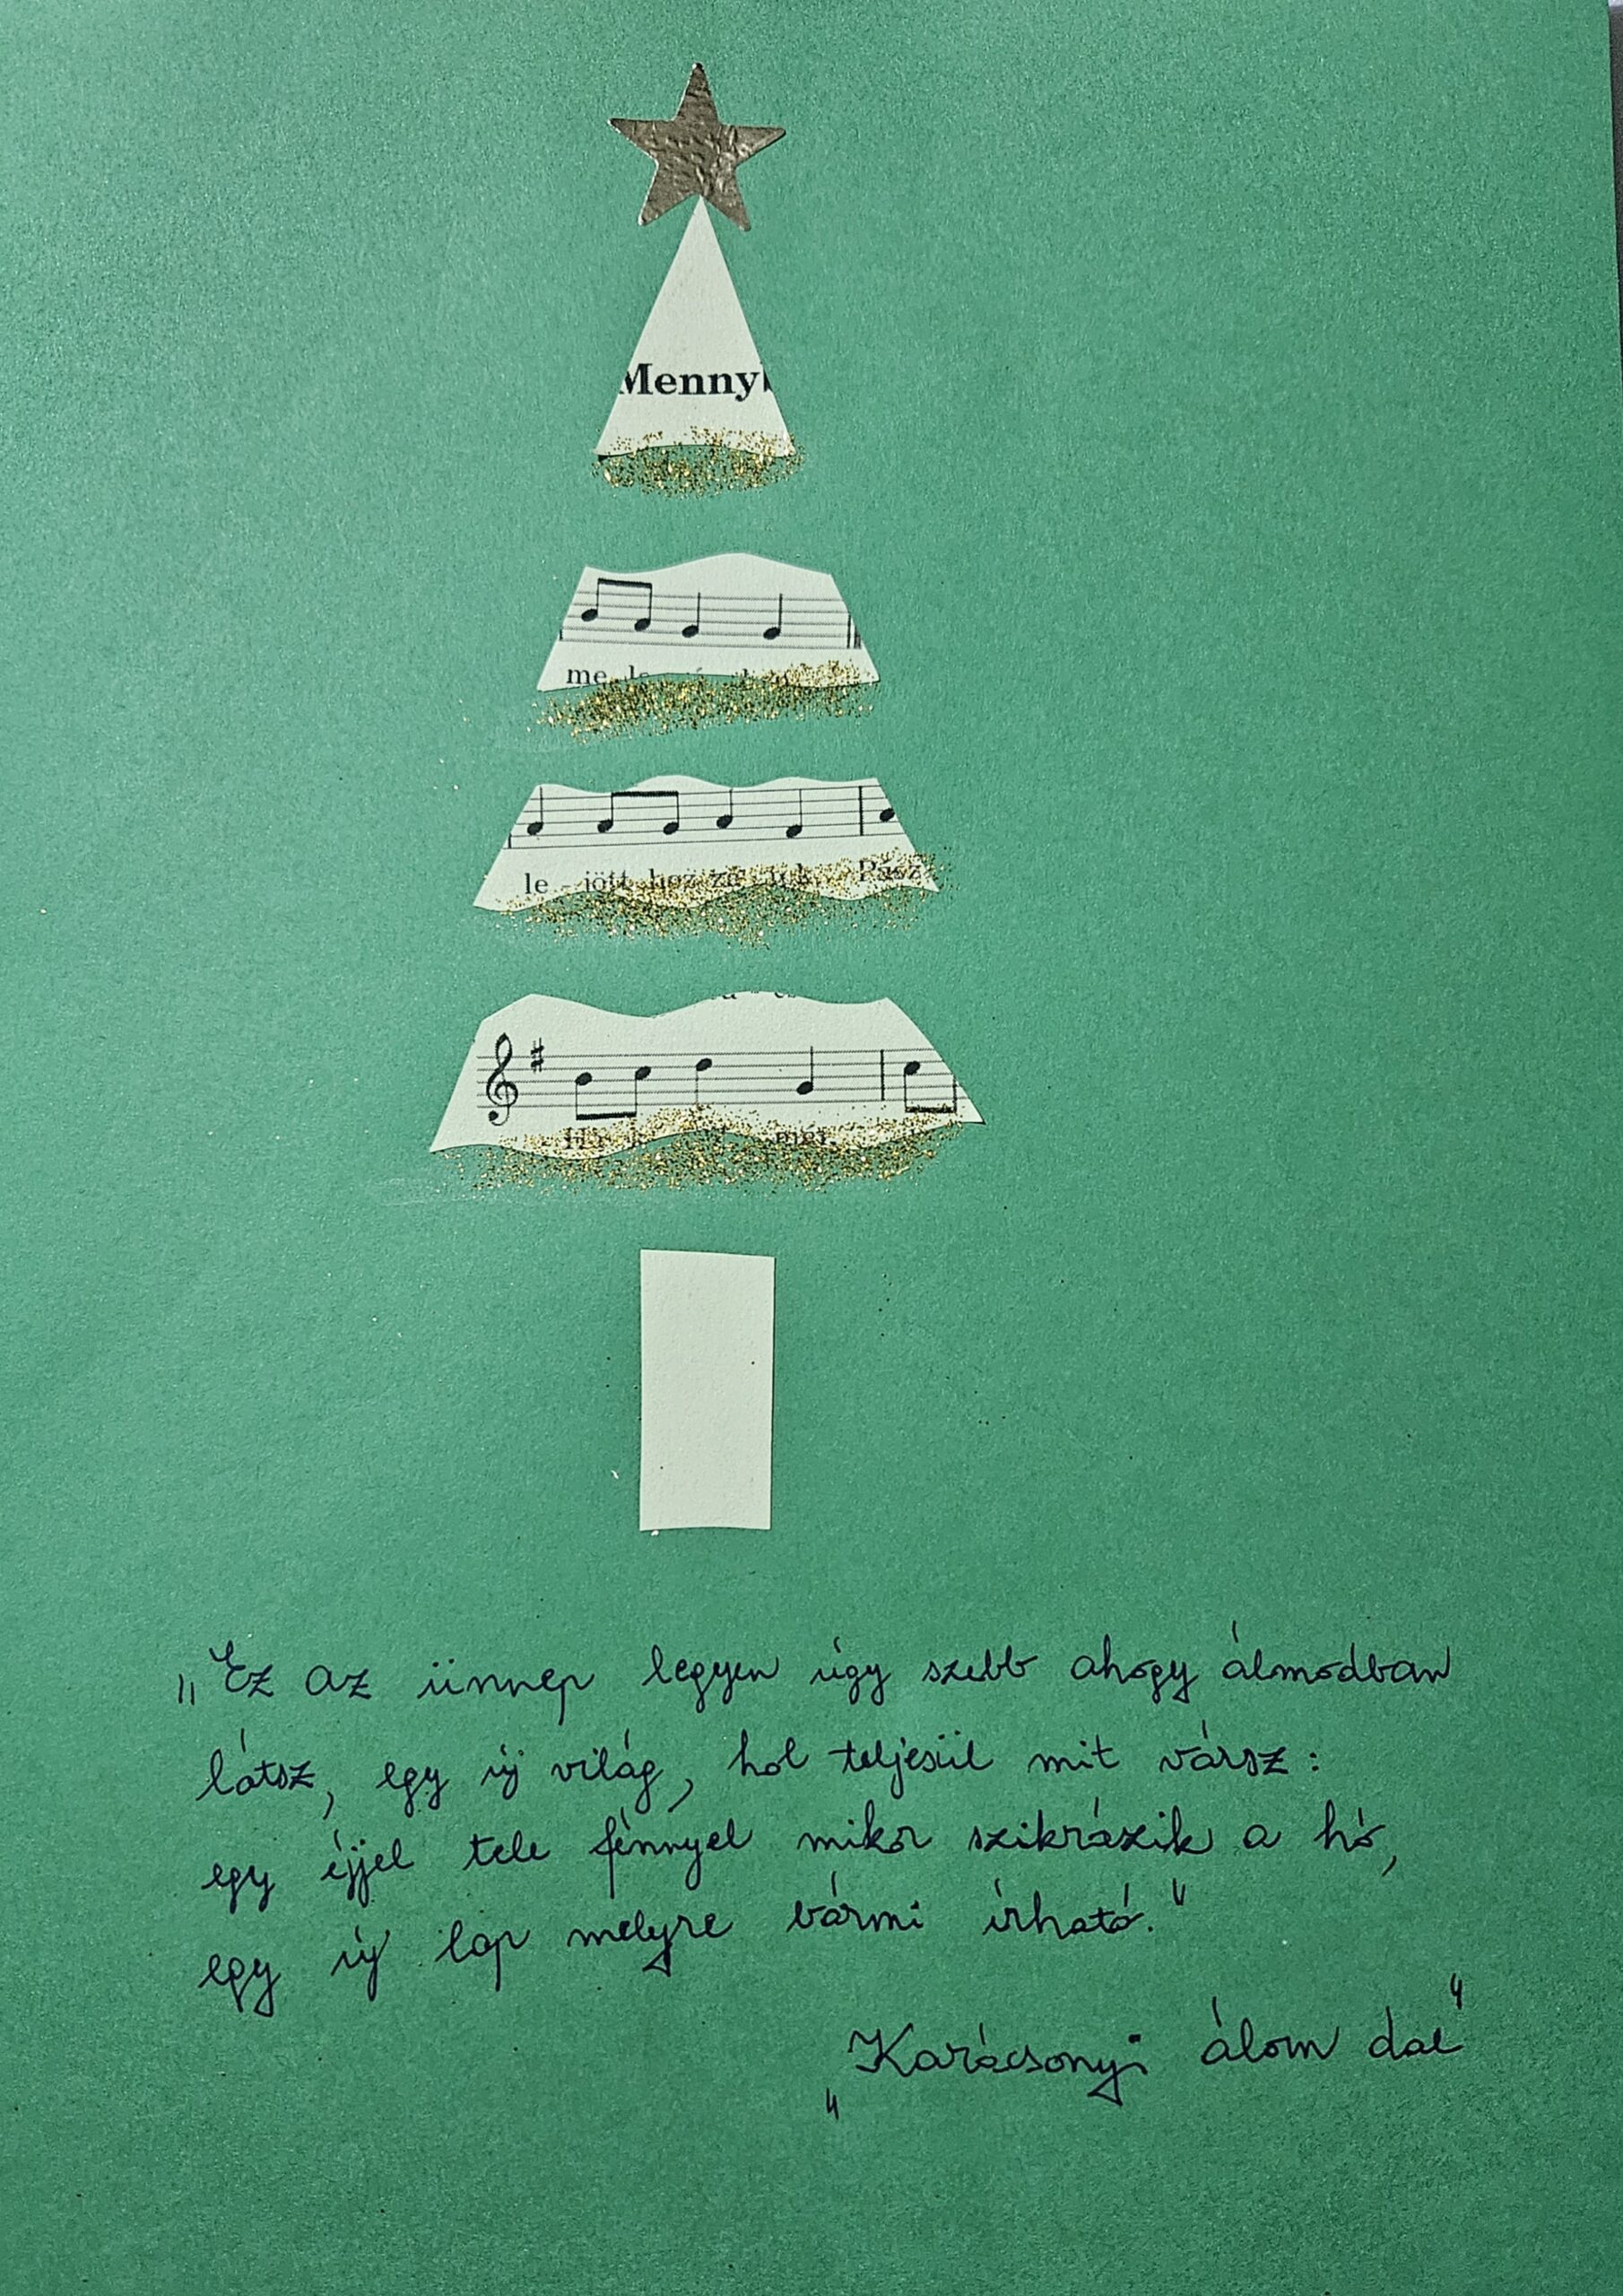 Menny
me
le - jött hoz-zá - uk. Pász
mert
„Ez az ünnep legyen úgy szebb ahogy álmodban
látsz, egy új világ, hol teljesül mit vársz:
egy éjjel tele fénnyel mikor szikrázik a hó,
egy új lap melyre bármi írható."
„Karácsonyi álom dal"